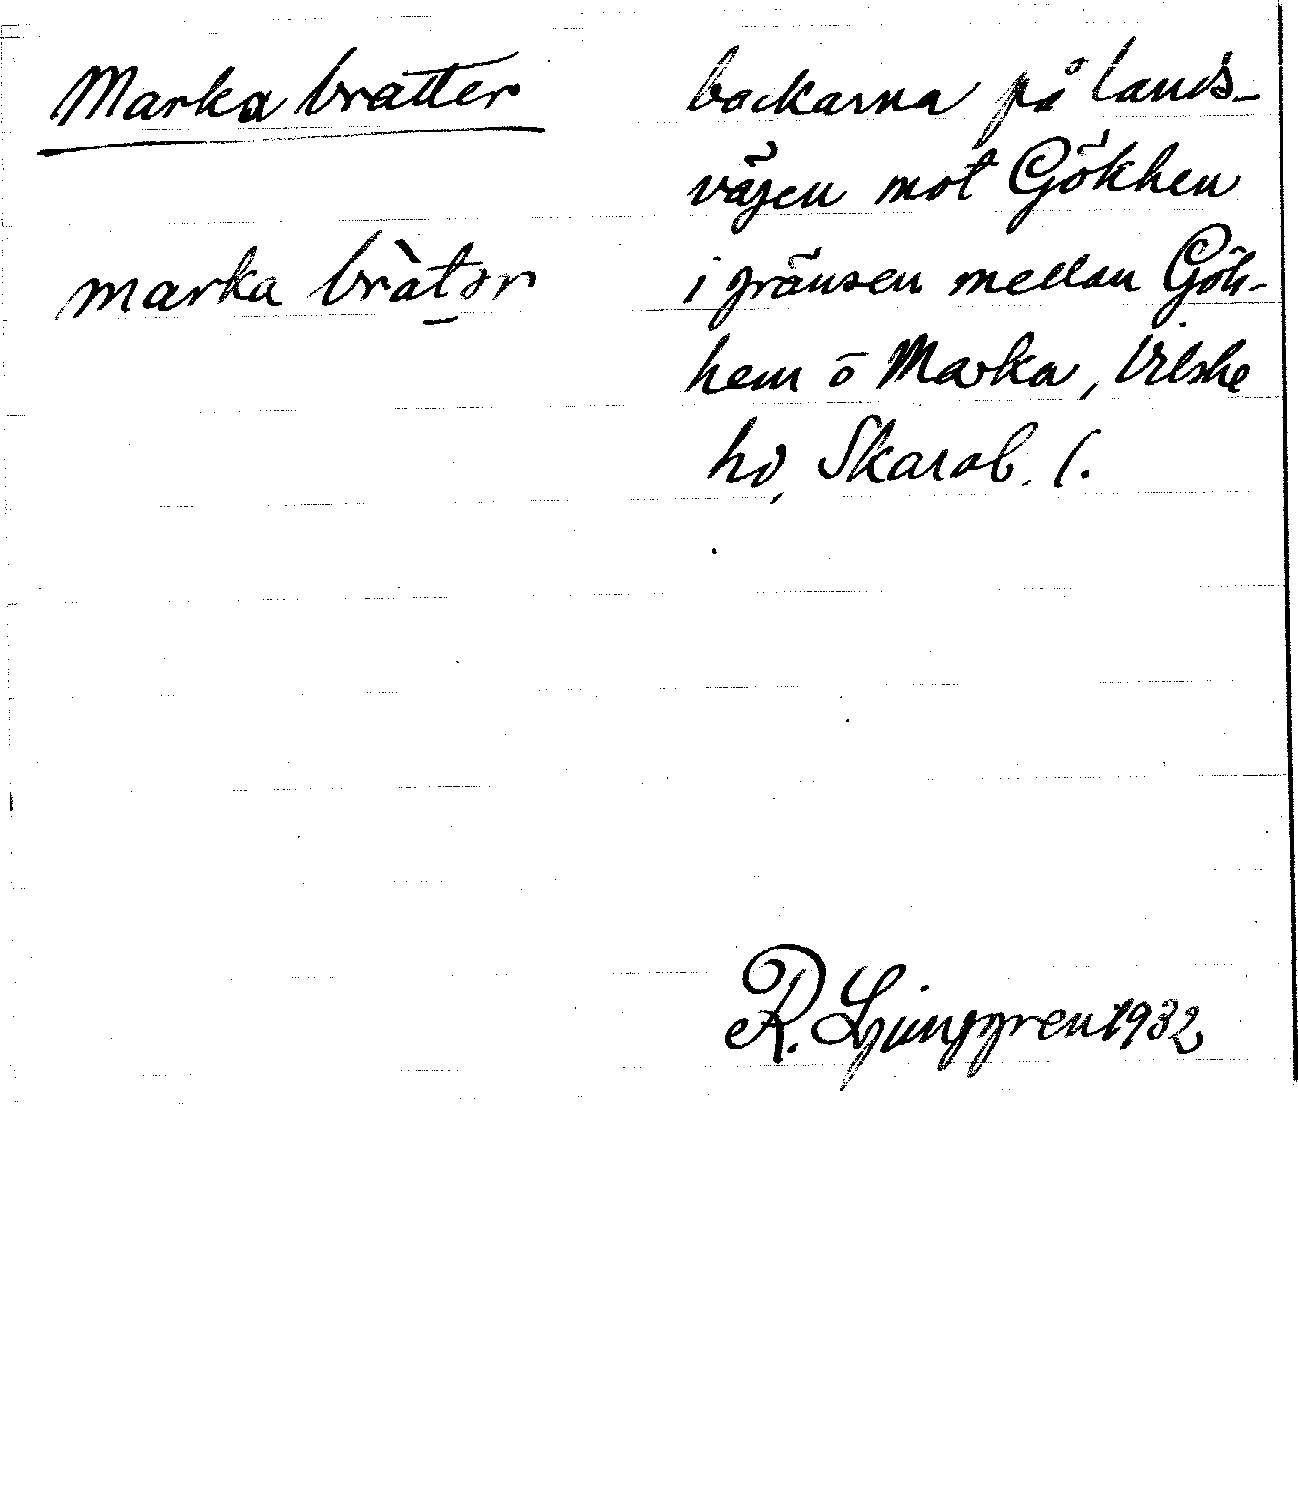 Marka bratter
marka bràtər
backarna på lands-
vägen mot Gökhen
i gränsen mellan Gök-
hem o Marka, Vilske
hd, Skarab. l.
R. Ljunggren 1932